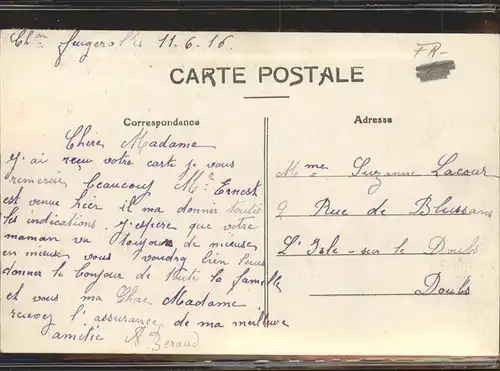 Chon Fugerolles 11.6.16.
FR-
CARTE POSTALE
Correspondance
Adresse
Chere Madame
j'ai reçu votre carte je vous
remercie beaucoup Mr Ernest
est venue hier il ma donner toutes
les indications. j'espere que votre
maman va toujours de mieux
en mieux vous voudrez bien leurs
donner le bonjour de toute la famille
et vous ma Chere Madame
recevez l'assurance de ma meilleure
amitié Beraud
Mme Suzanne Lacour
9 Rue de Blussans
L'Isle-sur le Doubs
Doubs